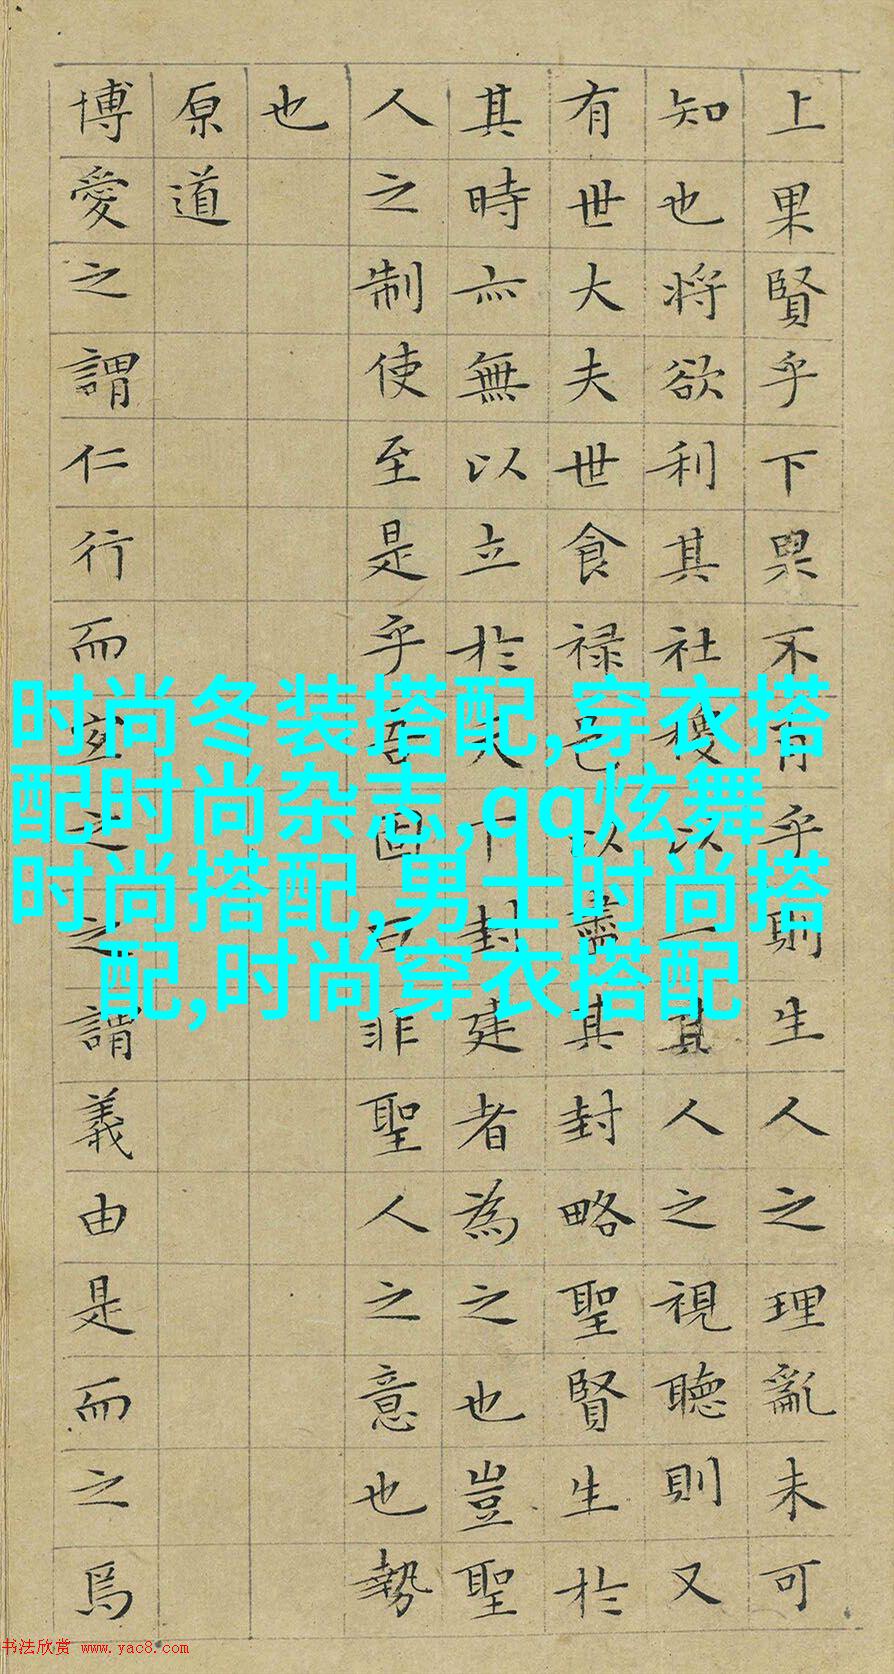 上果賢乎下果不肖乎則生人之理亂未可
知也將欲利其社稷以一其人之視聽則又
有世大夫世食禄邑以盡其封略聖賢生於
其時亦無以立於天下封建者為之也豈聖
人之制使至是乎吾固曰非聖人之意也勢
也
原道
博愛之謂仁行而宜之之謂義由是而之焉
时尚冬装搭配,穿衣搭
配时尚杂志,qq炫舞
时尚搭配,男士时尚搭
配,时尚穿衣搭配
书法欣赏 www.yac8.com